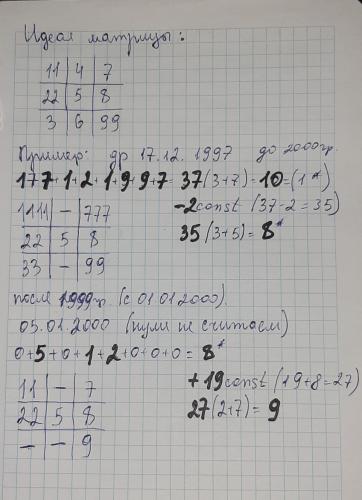 Идеал матрицы:
11 | 4 | 7
22 | 5 | 8
3 | 6 | 99
Пример: др 17.12.1997 до 2000гр.
177+1+2+1+9+9+7=37(3+7)=10=(1*)
-2const (37-2=35)
1111 | - | 777
35(3+5)=8*
22 | 5 | 8
33 | - | 99
после 1999гр. (с 01.01.2000).
05.01.2000 (нули не считаем)
0+5+0+1+2+0+0+0=8*
+19const (19+8=27)
11 | - | 7
27(2+7)=9
22 | 5 | 8
- | - | 9